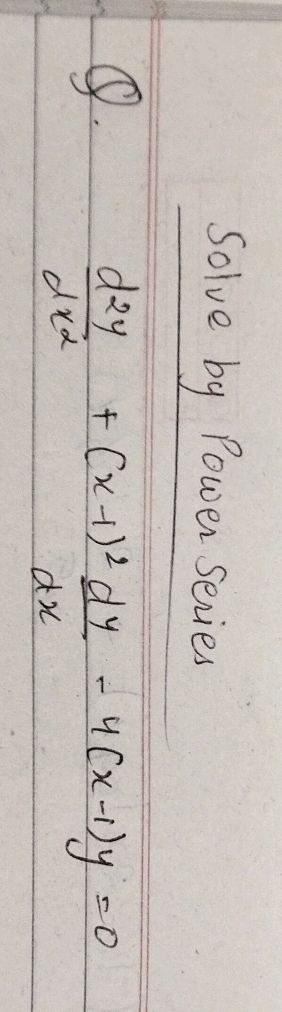 Solve by Power Series
Q. d²y/dx² + (x-1)² dy/dx - 4(x-1)y = 0